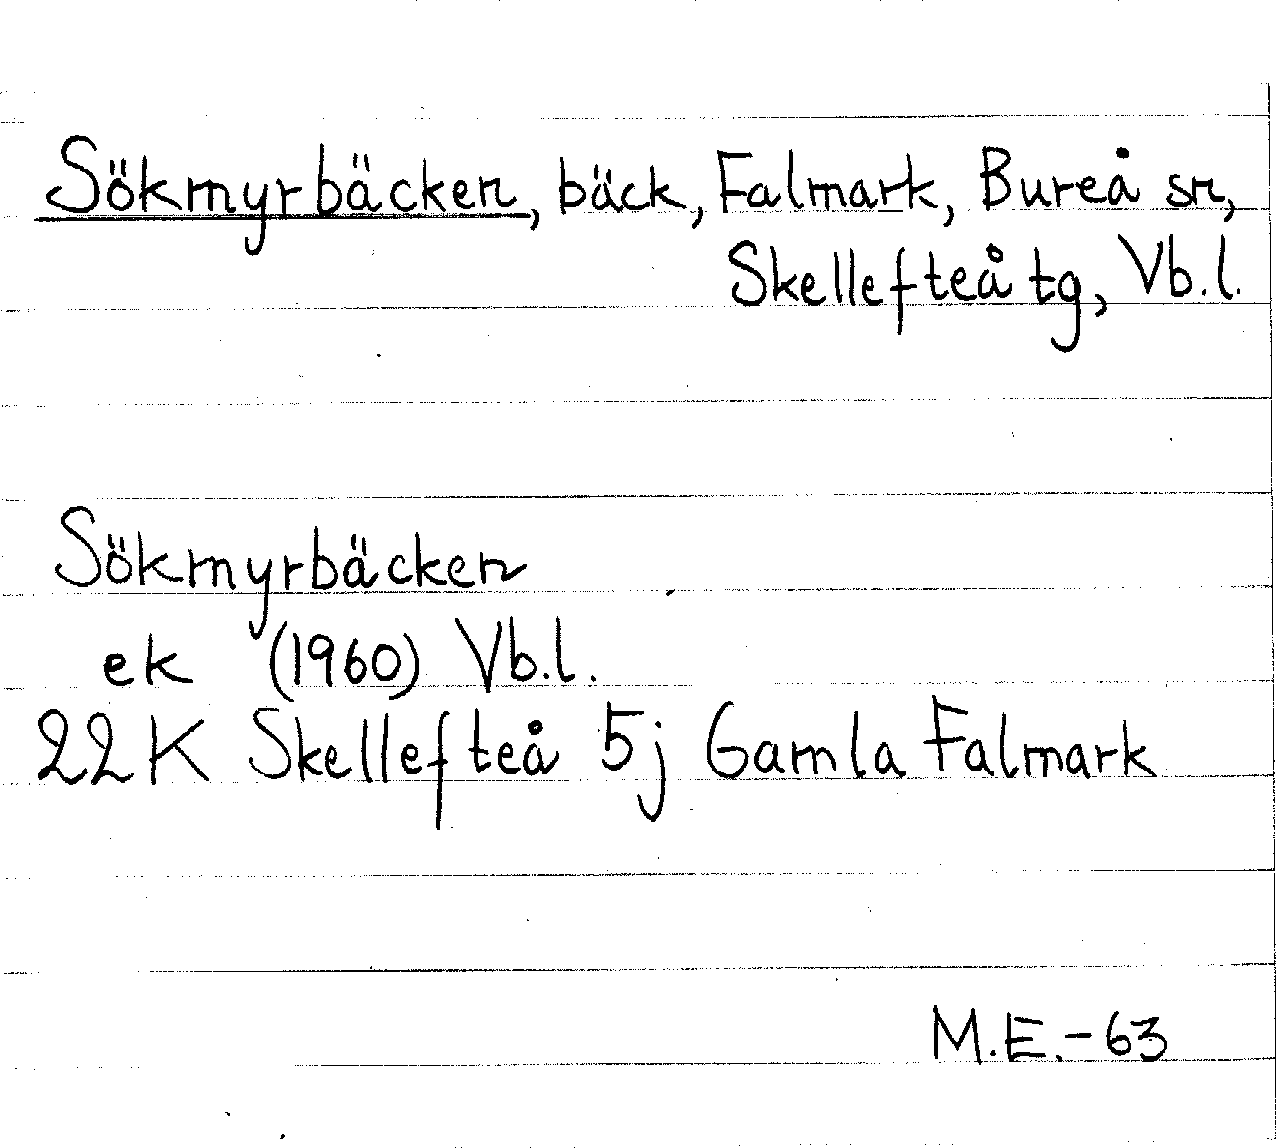 Sökmyrbäcken, bäck, Falmark, Bureå sn,
Skellefteå tg, Vb.l.
Sökmyrbäcken
ek (1960) Vb.l.
22K Skellefteå 5j Gamla Falmark
M.E.-63